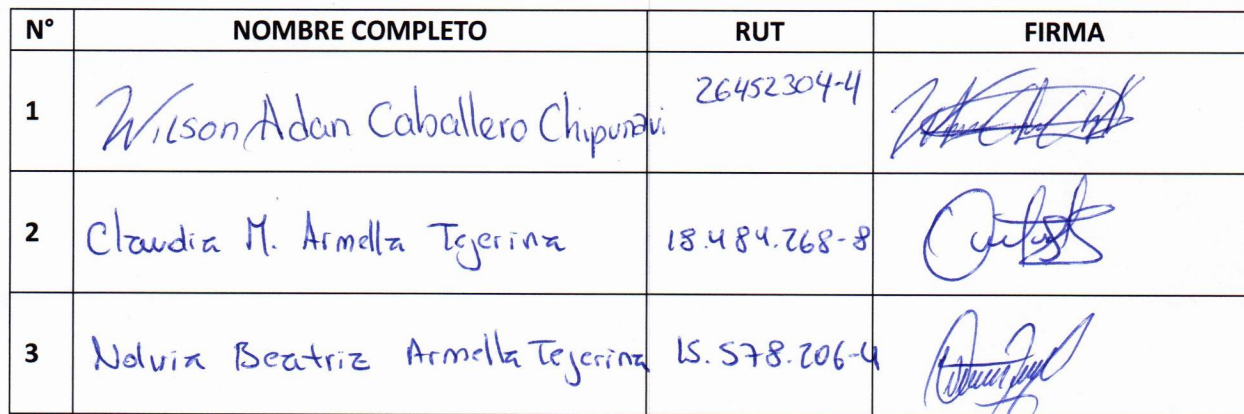 N° NOMBRE COMPLETO RUT FIRMA
1 Wilson Adan Caballero Chipunavi 26452304-4
2 Claudia M. Armella Tejerina 18.484.268-8
3 Nolvia Beatriz Armella Tejerina 15.578.206-4